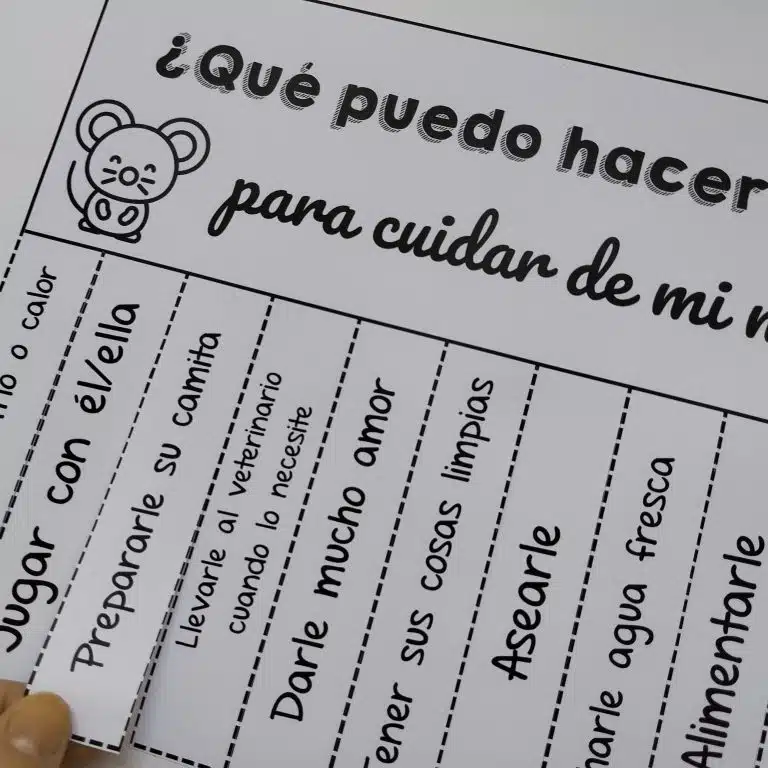 ¿Qué puedo hacer
para cuidar de mi
o calor
Jugar con él/ella
Prepararle su camita
Llevarle al veterinario
cuando lo necesite
Darle mucho amor
sus cosas limpias
Asearle
agua fresca
Alimentarle